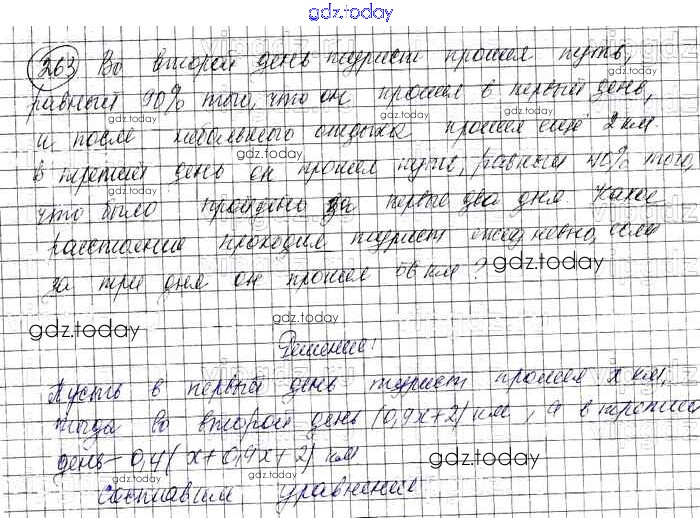 gdz.today
263 Во второй день турист прошел путь,
равный 90% того, что он прошел в первый день,
и после небольшого отдыха прошел еще 2 км.
В третий день он прошел путь, равный 40% того,
что было пройдено за первые два дня. Какое
расстояние проходил турист ежедневно, если
за три дня он прошел 56 км?
gdz.today
gdz.today
Решение:
Пусть в первый день турист прошел x км,
тогда во второй день (0,9x+2) км, а в третий
день - 0,4(x+0,9x+2) км
gdz.today
составим уравнение